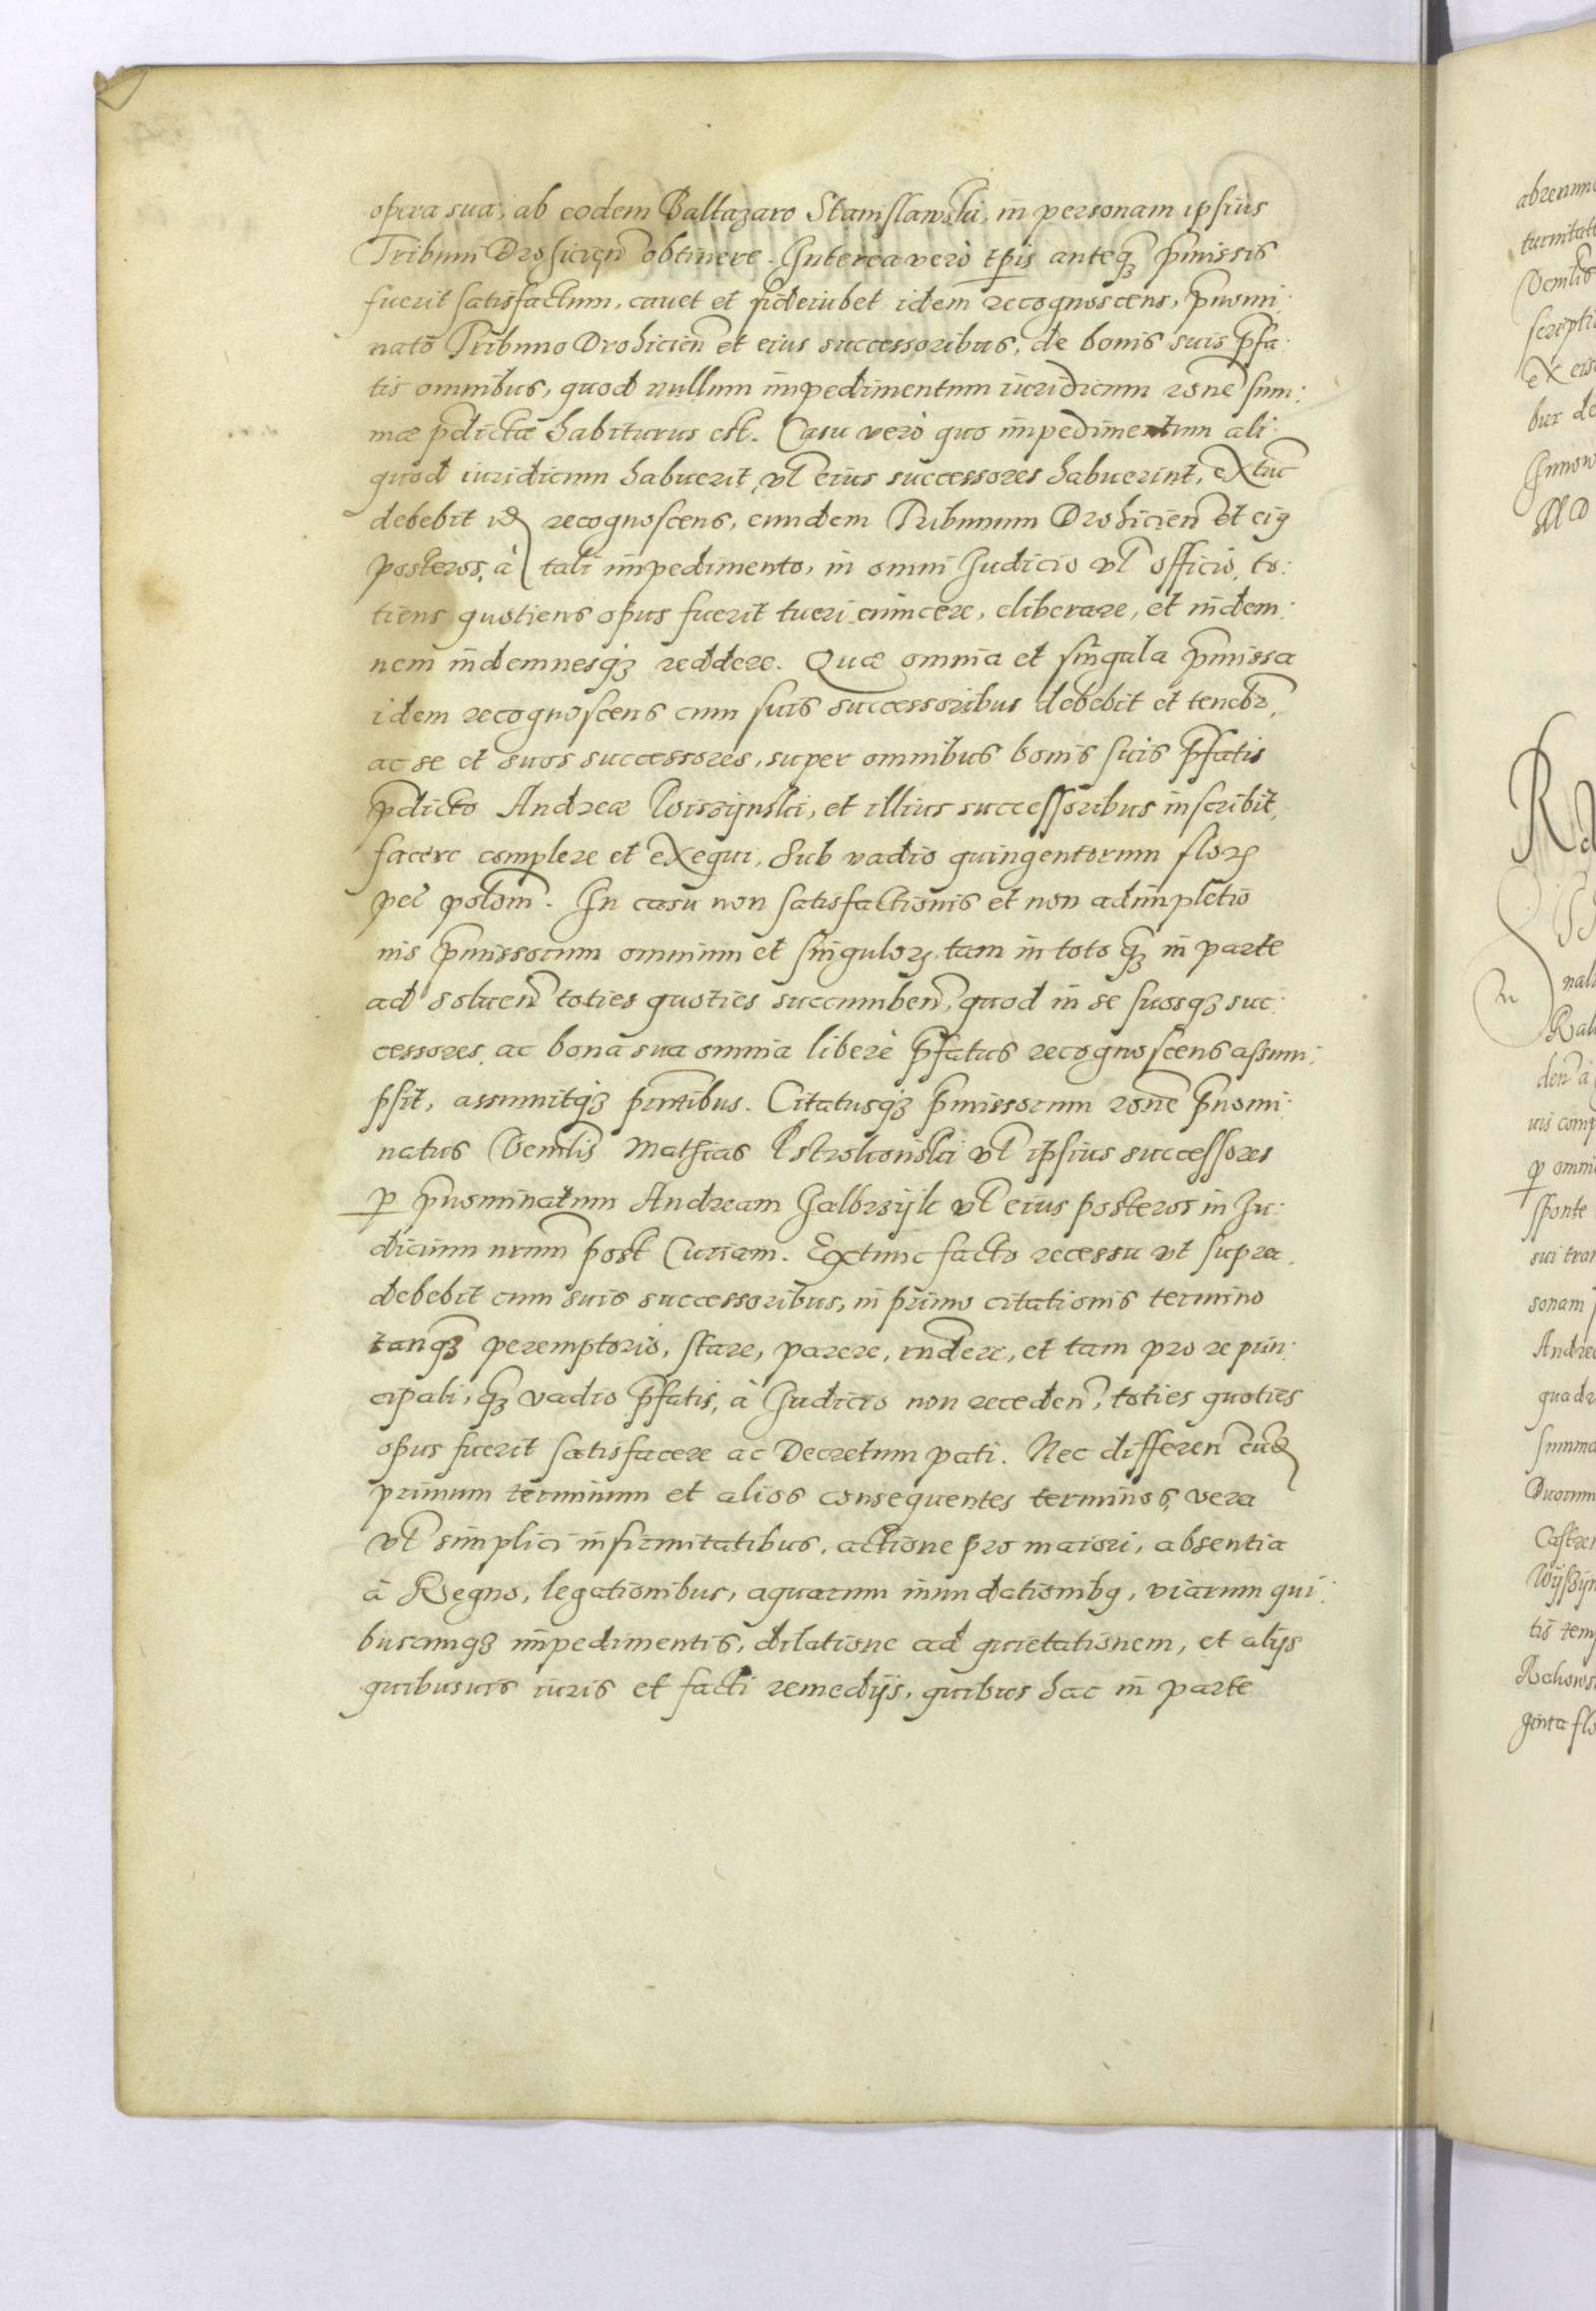 opera sua, ab eodem Baltazaro Stanislawski, in personam ipsius
Tribuni Drohicien̄ obtinere. Interea vero tp̄is anteq̄ȝ p̄missis
fuerit satisfactum, cavet et fideiubet idem recognoscens, p̄nomi:
nato Tribuno Drohicien̄ et eius successoribus, de bonis suis p̄fa:
tis omnibus, quod nullum impedimentum iuridicum rōne sum:
mæ p̄dictæ habiturus est. Casu verò quo impedimentum ali:
quod iuridicum habuerit, vl̄ eius successores habuerint, extūc
debebit idē recognoscens, eundem Tribunum Drohicien̄ et eiꝯ
posteros, à tali impedimento, in omni Judicio vl̄ officio, to:
tiens quotiens opus fuerit tueri evincere, eliberare, et indem:
nem indemnesqȝ reddere. Quæ omnia et singula p̄missa
idem recognoscens cum suis successoribus debebit et tenebr̄,
ac se et suos successores, super omnibus bonis suis p̄fatis
p̄dicto Andreæ, et illius successoribus inscribit,
facere complere et exequi, Sub vadio quingentorum florꝝ
pec̄ polōn̄. In casu non satisfactionis et non adimpletio
nis p̄missorum omnium et singulorꝝ tam in toto q̄ȝ in parte
ad soluen̄ toties quoties succumben̄, quod in se suosqȝ suc:
cessores, ac bona sua omnia liberè p̄fatus recognoscens assum:
psit, assumitqȝ pn̄tibus. Citatusqȝ p̄missorum rōne p̄nomi:
natus Gen̄lis Mathias vl̄ ipsius successores
ꝑ p̄nominatum Andream vl̄ eius posteros in Ju:
dicium nr̄um post Curiam. Extunc facto recessu vt supra,
debebit cum suis successoribus, in primo citationis termino
tanq̄ȝ peremptorio, stare, parere, rn̄dere, et tam pro re prin:
cipali, q̄ȝ vadio p̄fatis, à Judicio non receden̄, toties quoties
opus fuerit satisfacere ac Decretum pati. Nec differen̄ eūdē
primum terminum et alios consequentes terminos, vera
vl̄ simplici infirmitatibus, actione pro maiori, absentia
à Regno, legationibus, aquarum inundationibꝯ, viarum qui:
buscumqȝ impedimentis, dilatione ad quietationem, et alijs
quibusvis iuris et facti remedijs, quibus hac in parte